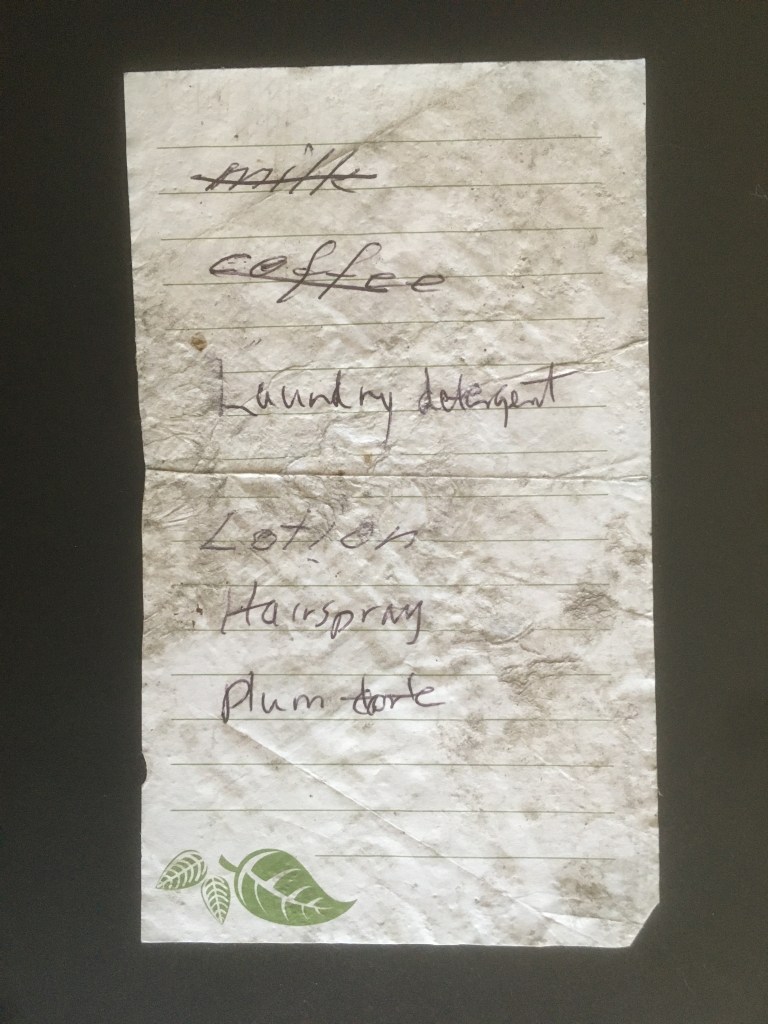 milk
coffee
Laundry detergent
Lotion
Hairspray
Plum torte